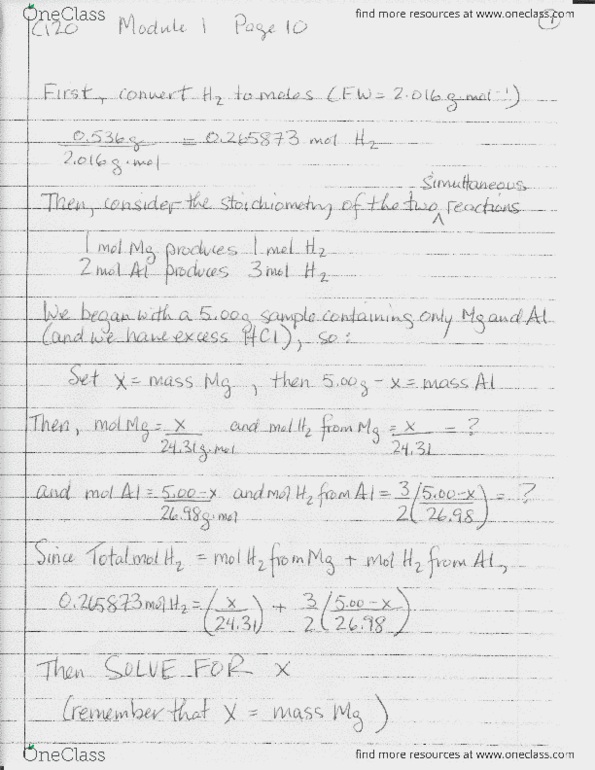 OneClass find more resources at www.oneclass.com
C120 Module 1 Page 10 1
First, convert H₂ to moles (FW = 2.016 g mol⁻¹)
0.536g = 0.265873 mol H₂
2.016 g·mol
Simultaneous
Then, consider the stoichiometry of the two ^ reactions
1 mol Mg produces 1 mol H₂
2 mol Al produces 3 mol H₂
We began with a 5.00g sample containing only Mg and Al
(and we have excess HCl), so:
Set X = mass Mg, then 5.00g - x = mass Al
Then, mol Mg = x and mol H₂ from Mg = x = ?
24.31g·mol 24.31
and mol Al = 5.00-x and mol H₂ from Al = 3 (5.00-x) = ?
26.98g·mol 2 (26.98)
Since Total mol H₂ = mol H₂ from Mg + mol H₂ from Al,
0.265873 mol H₂ = (x) + 3 (5.00-x)
(24.31) 2 (26.98)
Then SOLVE FOR X
(remember that X = mass Mg)
OneClass find more resources at www.oneclass.com